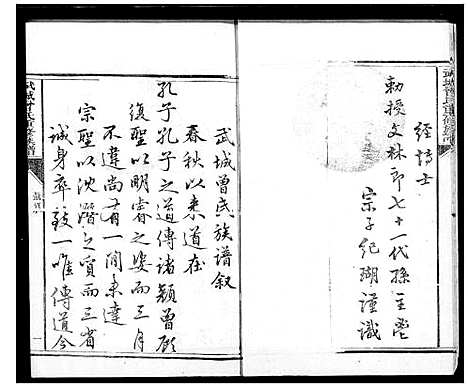 經博士
勅授文林郎七十一代孫主鬯
宗子紀瑚謹識
武城曾氏族譜叙
春秋以来道在
孔子孔子之道傳諸顏曾顧
復聖以明睿之姿而三月
不違尚有一間未達
宗聖以沈潛之質而三省
誠身卒致一唯傳道今
武城曾氏重修族譜
一